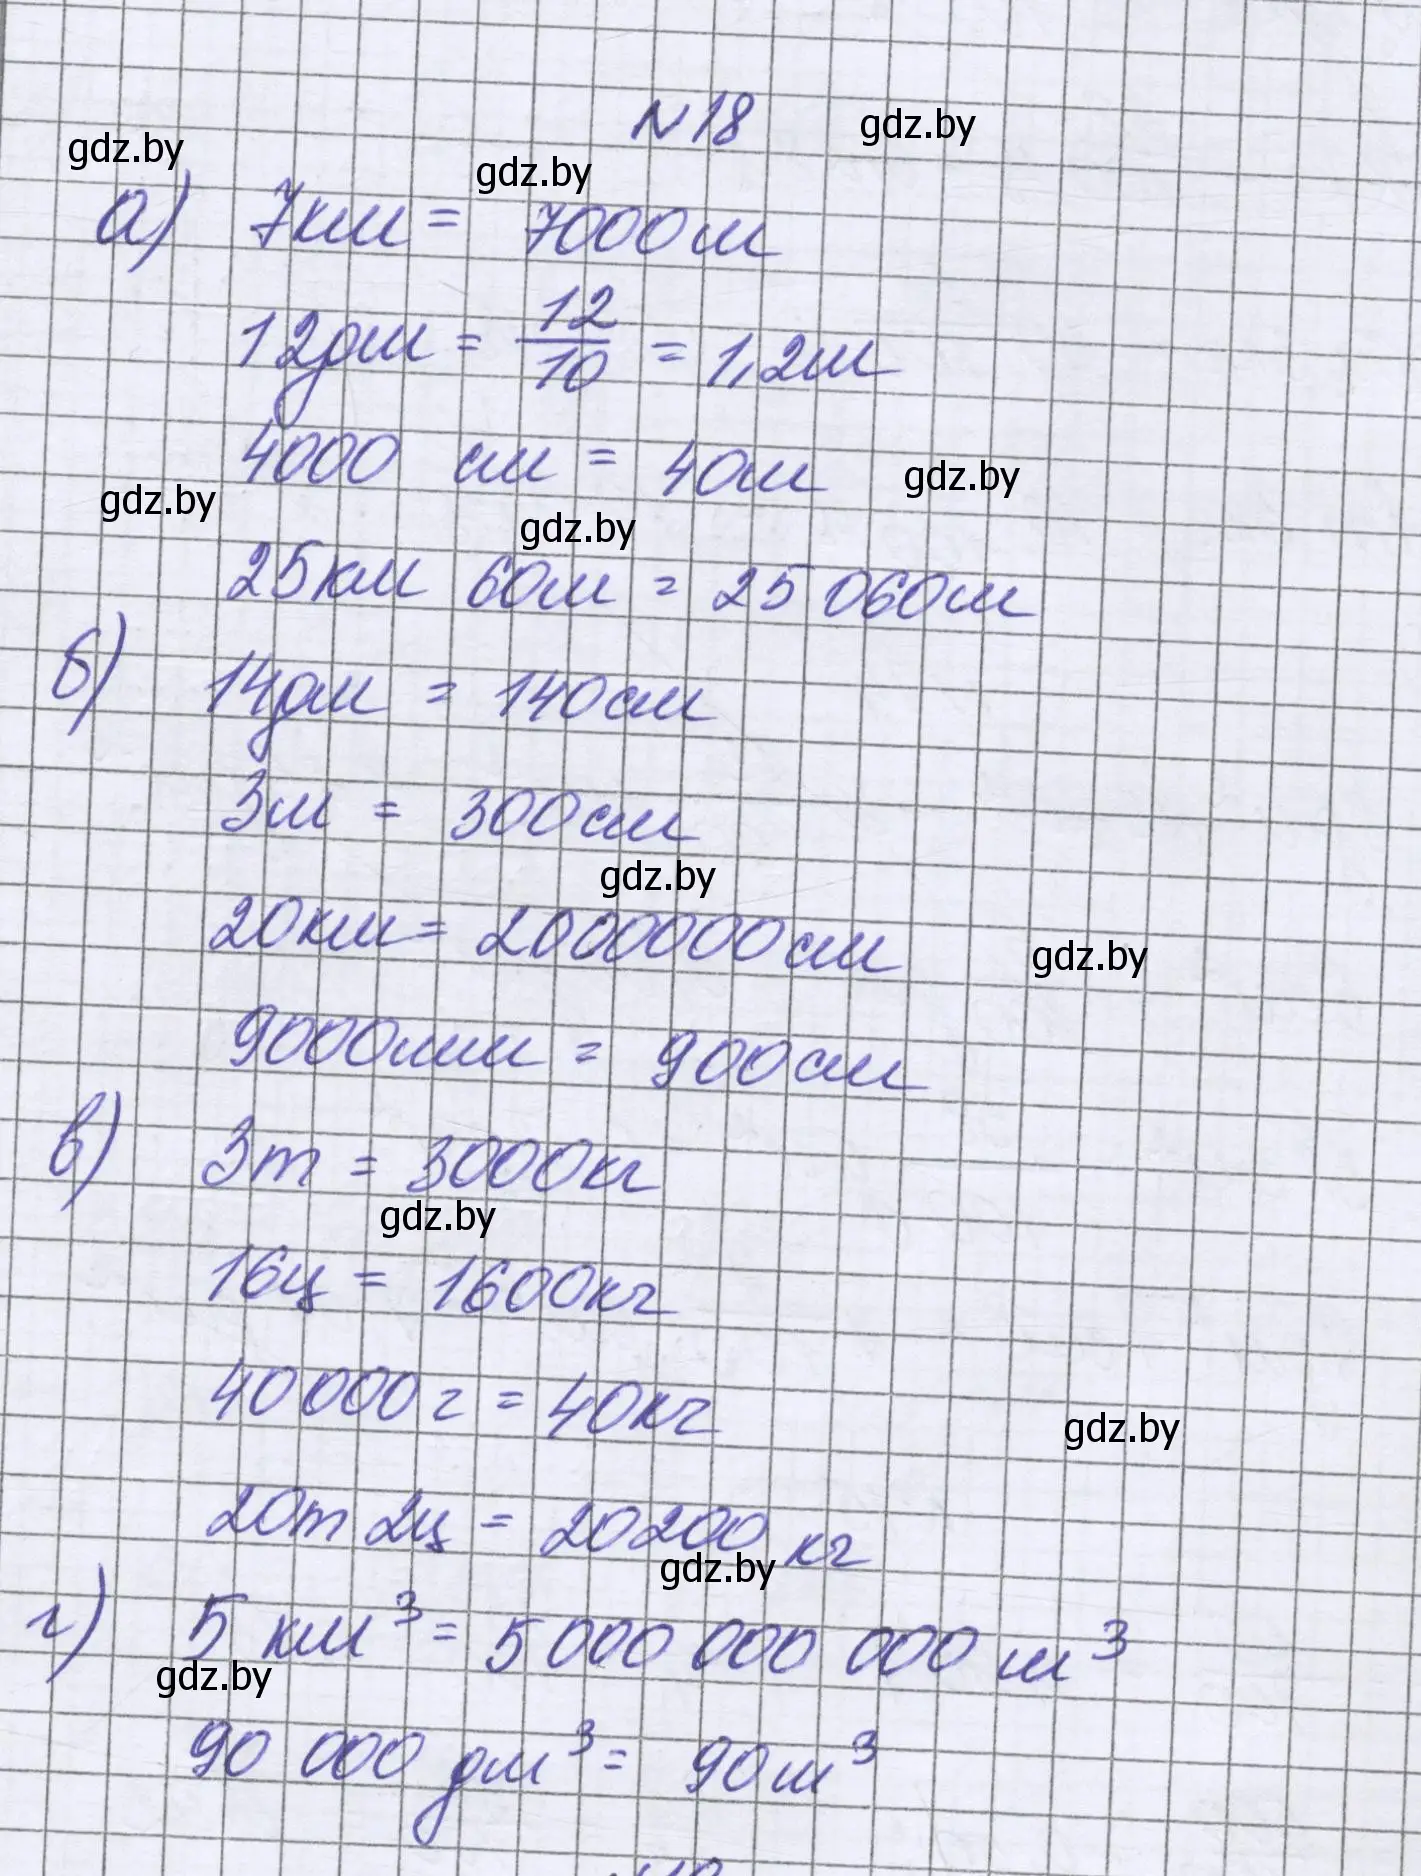 №18
gdz.by
gdz.by
gdz.by
а) 7км = 7000м
12дм = 12/10 = 1,2м
4000 см = 40м
gdz.by
gdz.by
gdz.by
25км 60м = 25 060м
б) 14дм = 140см
3м = 300см
gdz.by
20км = 2000000см
gdz.by
9000мм = 900см
в) 3т = 3000кг
gdz.by
16ц = 1600кг
40 000г = 40кг
gdz.by
20т 2ц = 20200 кг
gdz.by
г) 5 км³ = 5 000 000 000 м³
gdz.by
90 000 дм³ = 90м³